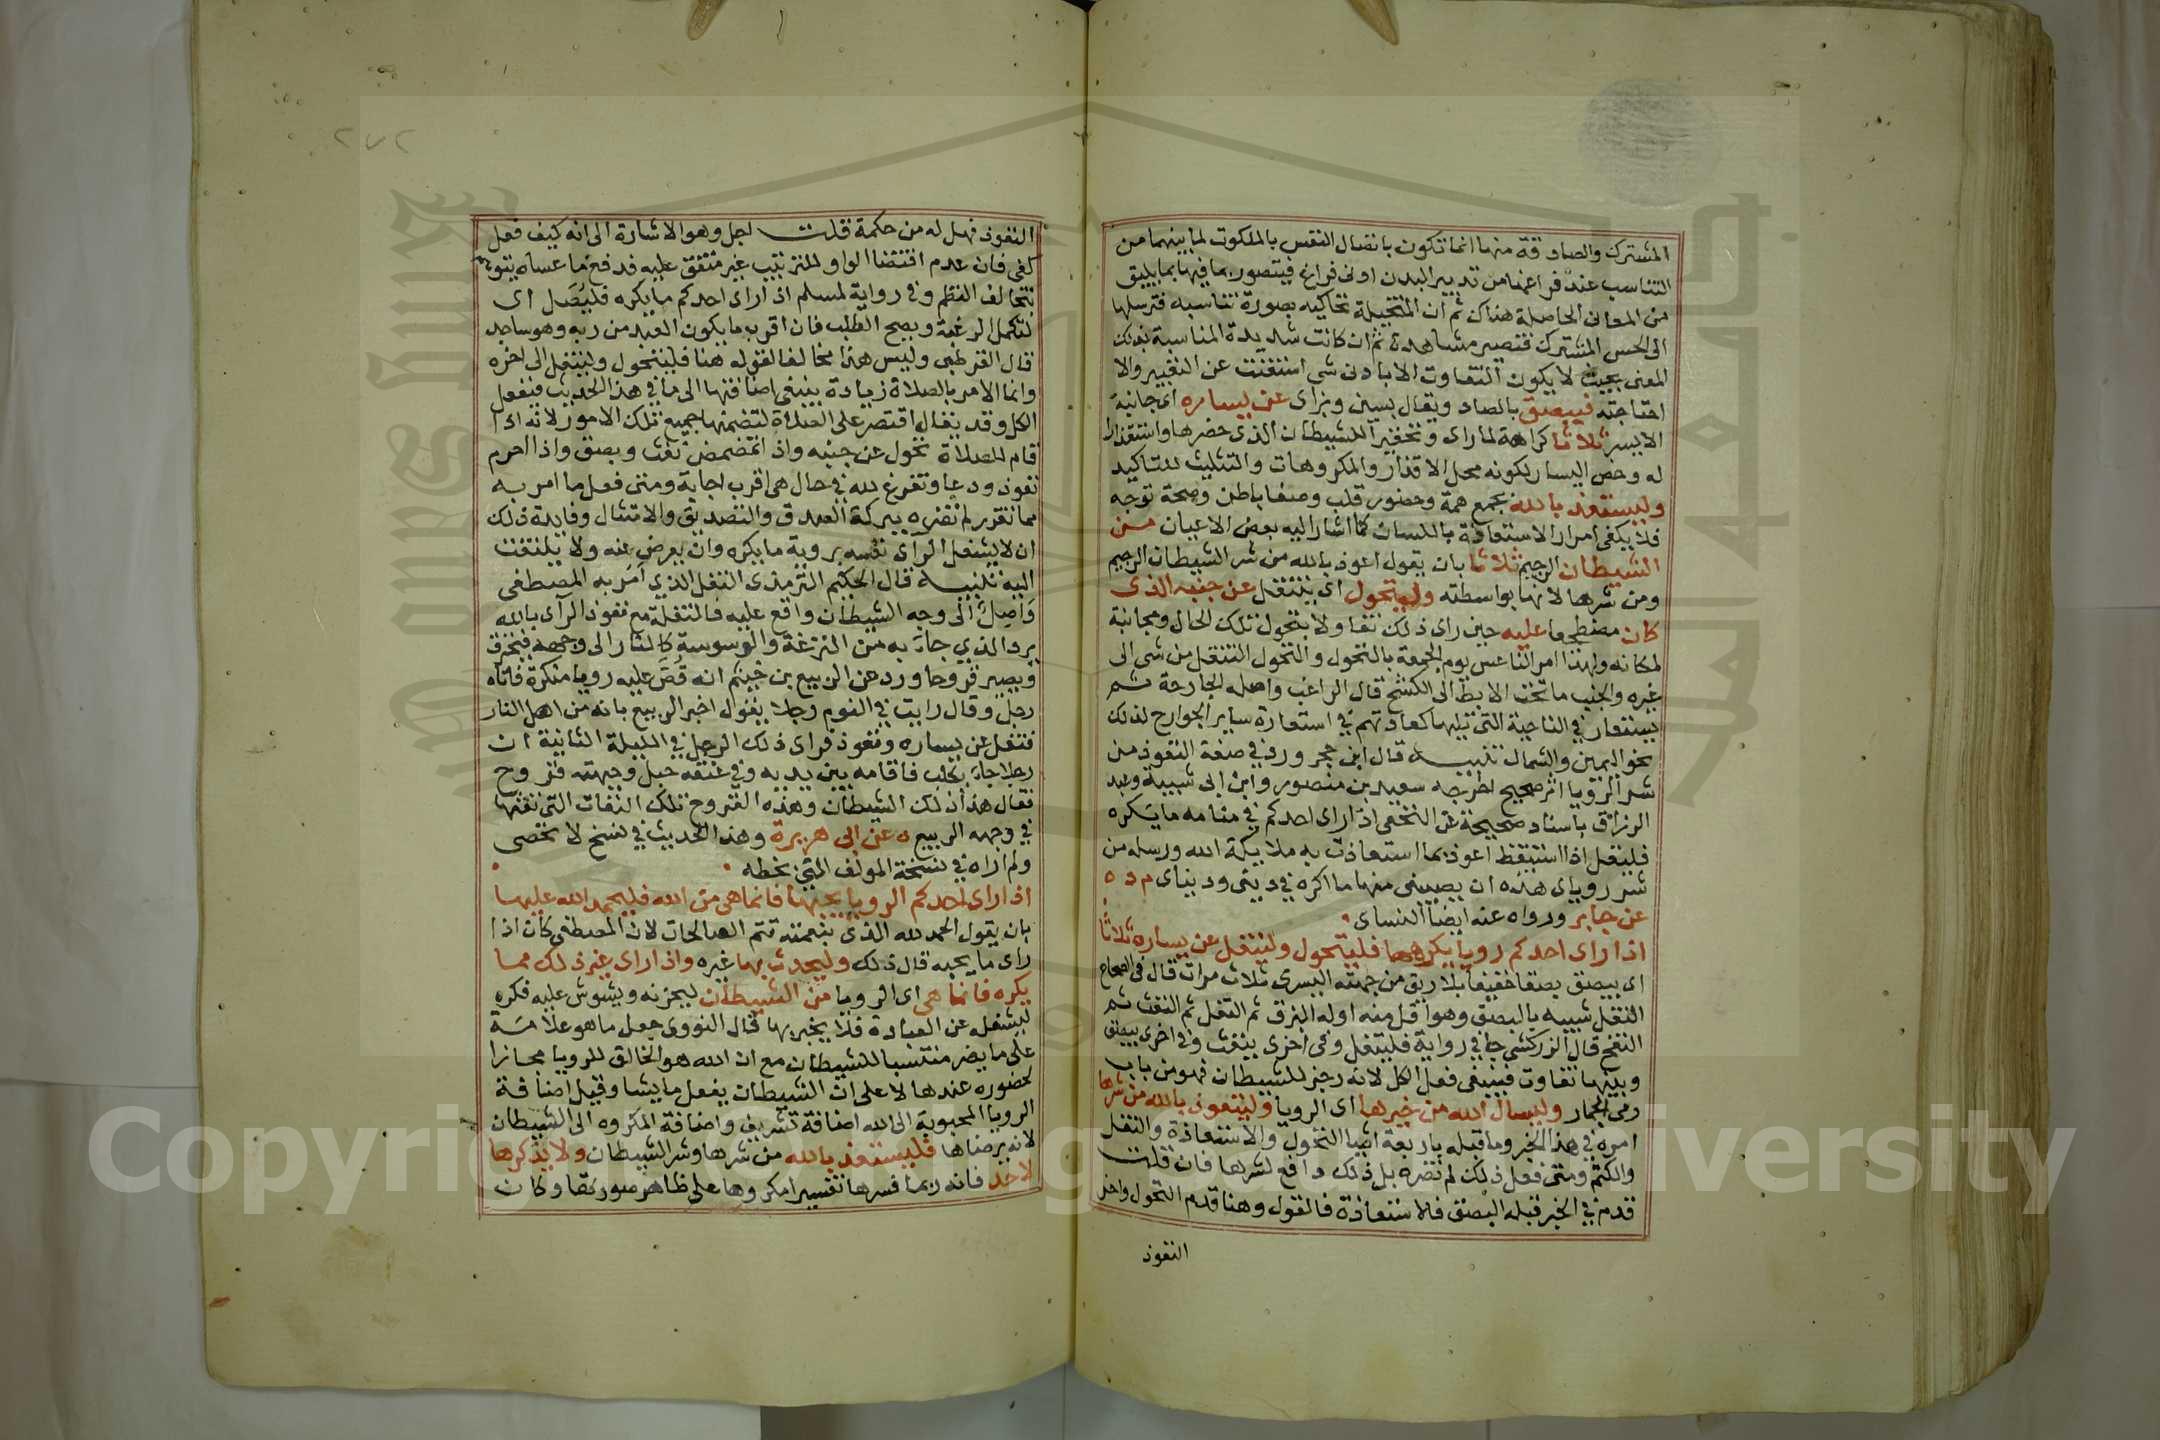 المشترك والصادقة منها انما تكون باتصال النفس بالملكوت لما بينهما من
التناسب عند فراغها من تدبير البدن ادنى فراغ فيتصور بما فيها بما يليق
من المعاني الحاصلة هناك ثم ان المتخيلة تحاكيه بصورة تناسبه فترسلها
الى الحس المشترك فتصير مشاهدة ثم ان كانت شديدة المناسبة بذلك
المعنى بحيث لا يكون التفاوت الا بادنى شي استغنت عن التعبير والا
احتاجته فيبصق بالصاد ويقال بسين وبزاى عن يساره اى جانبه
الايسر ثلاثا كراهة لما راى وتحقيرا للشيطان الذى حضرها واستقذارا
له وخص اليسار لكونه محل الاقذار والمكروهات والتثليث للتاكيد
وليستعذ بالله بجمع همة وحضور قلب وصفا باطن وصحة توجه
فلا يكفى امرار الاستعاذة باللسان كما اشار اليه بعض الاعيان من
الشيطان الرجيم ثلاثا بان يقول اعوذ بالله من شر الشيطان الرجيم
ومن شرها لانها بواسطته وليتحول اى ينتقل عن جنبه الذى
كان مضطجعا عليه حين راى ذلك تفاولا بتحول تلك الحال ومجانبة
لمكانه ولهذا امر الناعس يوم الجمعة بالتحول والتحول التنقل من شى الى
غيره والجنب ما تحت الابط الى الكشح قال الراغب واصله الجارحة ثم
يستعار في الناحية التى تليها كعادتهم في استعارة ساير الجوارح لذلك
نحو اليمين والشمال تنبيه قال ابن حجر ورد في صفة التعوذ من
شر الرؤيا اثر صحيح اخرجه سعيد بن منصور وابن ابى شيبة وعبد
الرزاق باسناد صحيحة عن النخعى اذا راى احدكم في منامه ما يكره
فليقل اذا استيقظ اعوذ بما استعاذت به ملايكة الله ورسله من
شر روياى هذه ان يصيبنى منها ما اكره في دينى ودنياى م د ه
عن جابر ورواه عنه ايضا النساى
اذا راى احدكم رويا يكرهها فليتحول وليتفل عن يساره ثلاثا
اى يبصق بصقا خفيفا بلا ريق من جهته اليسرى ثلاث مرات قال في الصحاح
التفل شبيه بالبصق وهو اقل منه اوله البزق ثم التفل ثم النفث ثم
النفخ قال الزركشى جا في رواية فليتفل وفى اخرى ينفث وفى اخرى يبصق
وبينها تفاوت فينبغى فعل الكل لانه زجر للشيطان فهو من باب
رمى الجمار وليسال الله من خيرها اى الرويا وليتعوذ بالله من شرها
امره في هذا الخبر وما قبله باربعة اشيا التحول والاستعاذة والتفل
والكتم ومتى فعل ذلك لم تضره بل ذلك دافع لشرها فان قلت
قدم في الخبر قبله البصق فالاستعاذة فالتحول وهنا قدم التحول واخر
التعوذ
٢٧٢
التعوذ فهل له من حكمة قلت اجل وهو الاشارة الى انه كيف فعل
كفى فان عدم اقتضا الواو للترتيب غير متفق عليه فدفع ما عساه يتوهم
بتخالف النظم وفي رواية لمسلم اذا راى احدكم ما يكره فليصل اى
لتكمل الرغبة ويصح الطلب فان اقرب ما يكون العبد من ربه وهو ساجد
قال القرطبى وليس هذا مخالفا لقوله هنا فليتحول وليتفل الى اخره
وانما الامر بالصلاة زيادة ينبغى اضافتها الى ما في هذا الحديث فتفعل
الكل وقد يقال اقتصر على الصلاة لتضمنها جميع تلك الامور لانه اذا
قام للصلاة تحول عن جنبه واذ اتمضمض نفث وبصق واذا احرم
تعوذ ودعا وتضرع لله في حال هى اقرب اجابة ومتى فعل ما امر به
مما تقرر لم تضره ببركة الصدق والتصديق والامتثال وفايدة ذلك
ان لا يشغل الرآى نفسه بروية ما يكره وان يعرض عنه ولا يلتفت
اليه تنبيه قال الحكيم الترمذى التفل الذى امر به المصطفى
واصل الى وجه الشيطان واقع عليه فالتفلة مع تعوذ الرآى بالله
يرد الذي جاء به من النزغة والوسوسة كالنار الى وجهه فيحترق
ويصير قروحا ورد عن الربيع بن خيثم انه قص عليه رويا منكرة فاتاه
رجل وقال رايت في النوم رجلا يقول اخبر الربيع بانه من اهل النار
فتفل عن يساره وتعوذ فراى ذلك الرجل في الليلة الثانية ان
رجلا جاء بكلب فاقامه بين يديه وفي عنقه حبل وجبهته قروح
فقال هذا ذلك الشيطان وهذه القروح تلك النفات التى نفثها
في وجهه الربيع ه عن ابى هريرة وهذا الحديث في نسخ لا تحصى
ولم اراه في نسخة المولف التى بخطه
اذا راى احدكم الرويا يحبها فانما هى من الله فليحمد الله عليها
بان يقول الحمد لله الذى بنعمته تتم الصالحات لان المصطفى كان اذا
راى ما يحبه قال ذلك وليحدث بها غيره واذا راى غير ذلك مما
يكره فانما هى اى الرويا من الشيطان ليحزنه ويشوش عليه فكره
ليشغله عن العبادة فلا يخبر بها قال النووى جعل ما هو علامة
على ما يضر منتسبا للشيطان مع ان الله هو الخالق للرويا مجازا
لحضوره عندها لا على ان الشيطان يفعل ما يشا وقيل اضافة
الرويا المحبوبة الى الله اضافة تشريف واضافة المكروه الى الشيطان
لانه يرضاها فليستعذ بالله من شرها وشر الشيطان ولا يذكرها
لاحد فانه ربما فسرها تفسيرا مكروها على ظاهر صورتها وكان
Copyright © King Saud University